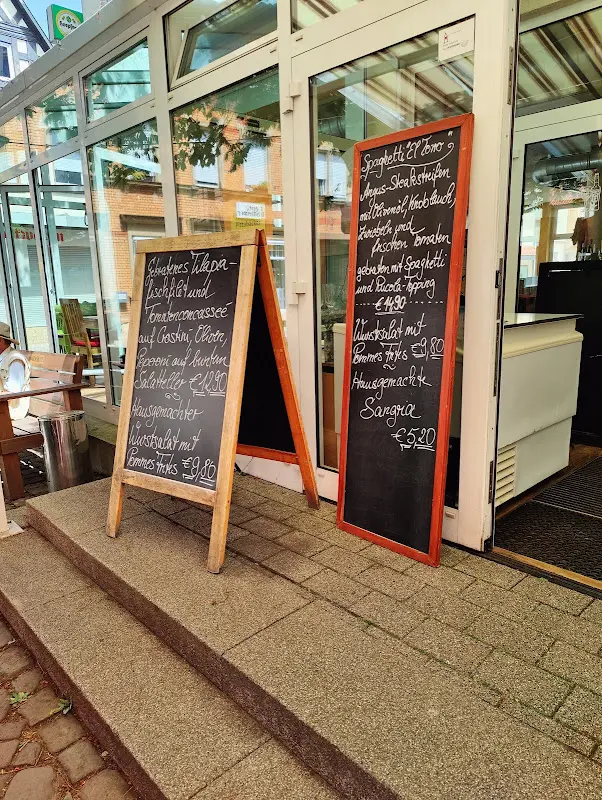 Gebratenes Tilapia-
fischfilet und
Tomatenconcasseé
auf Crostini, Oliven,
Peperoni auf buntem
Salatteller €12,90
Hausgemachter
Wurstsalat mit
Pommes Frites €9,80
Spaghetti "El Toro"
Angus-Steakstreifen
mit Olivenöl, Knoblauch,
Zwiebeln und
frischen Tomaten
gebraten mit Spaghetti
und Rucola-Topping
€14,90
Wurstsalat mit
Pommes Frites €9,80
Hausgemachte
Sangria
€5,20